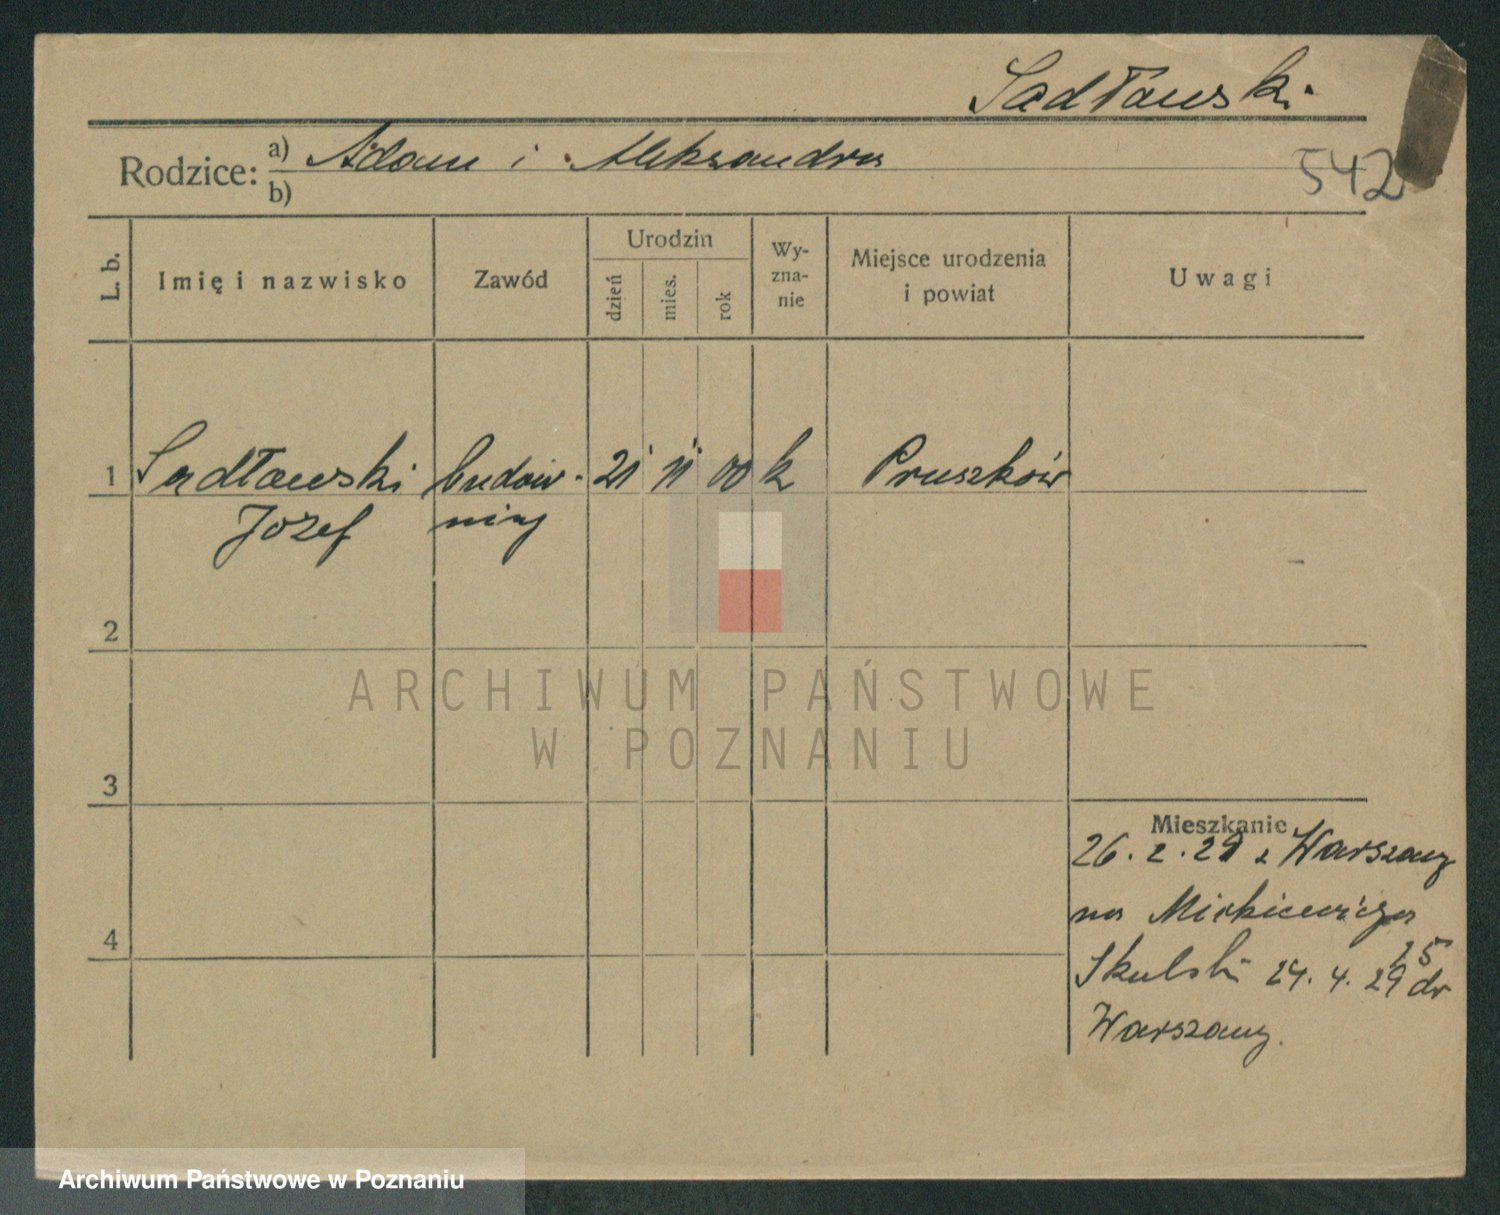 Sadławski
Rodzice: a) Adam i Aleksandra
b)
542
L. b.
Imię i nazwisko
Zawód
Urodzin
dzień
mies.
rok
Wy-
zna-
nie
Miejsce urodzenia
i powiat
Uwagi
1 Sadławski budow- 21 11 00 k Pruszków
Józef niczy
2
3
4
Mieszkanie
26. 2. 29 z Warszawy
na Mickiewicza
25
Skulski 24. 4. 29 do
Warszawy.
ARCHIWUM PAŃSTWOWE
W POZNANIU
Archiwum Państwowe w Poznaniu